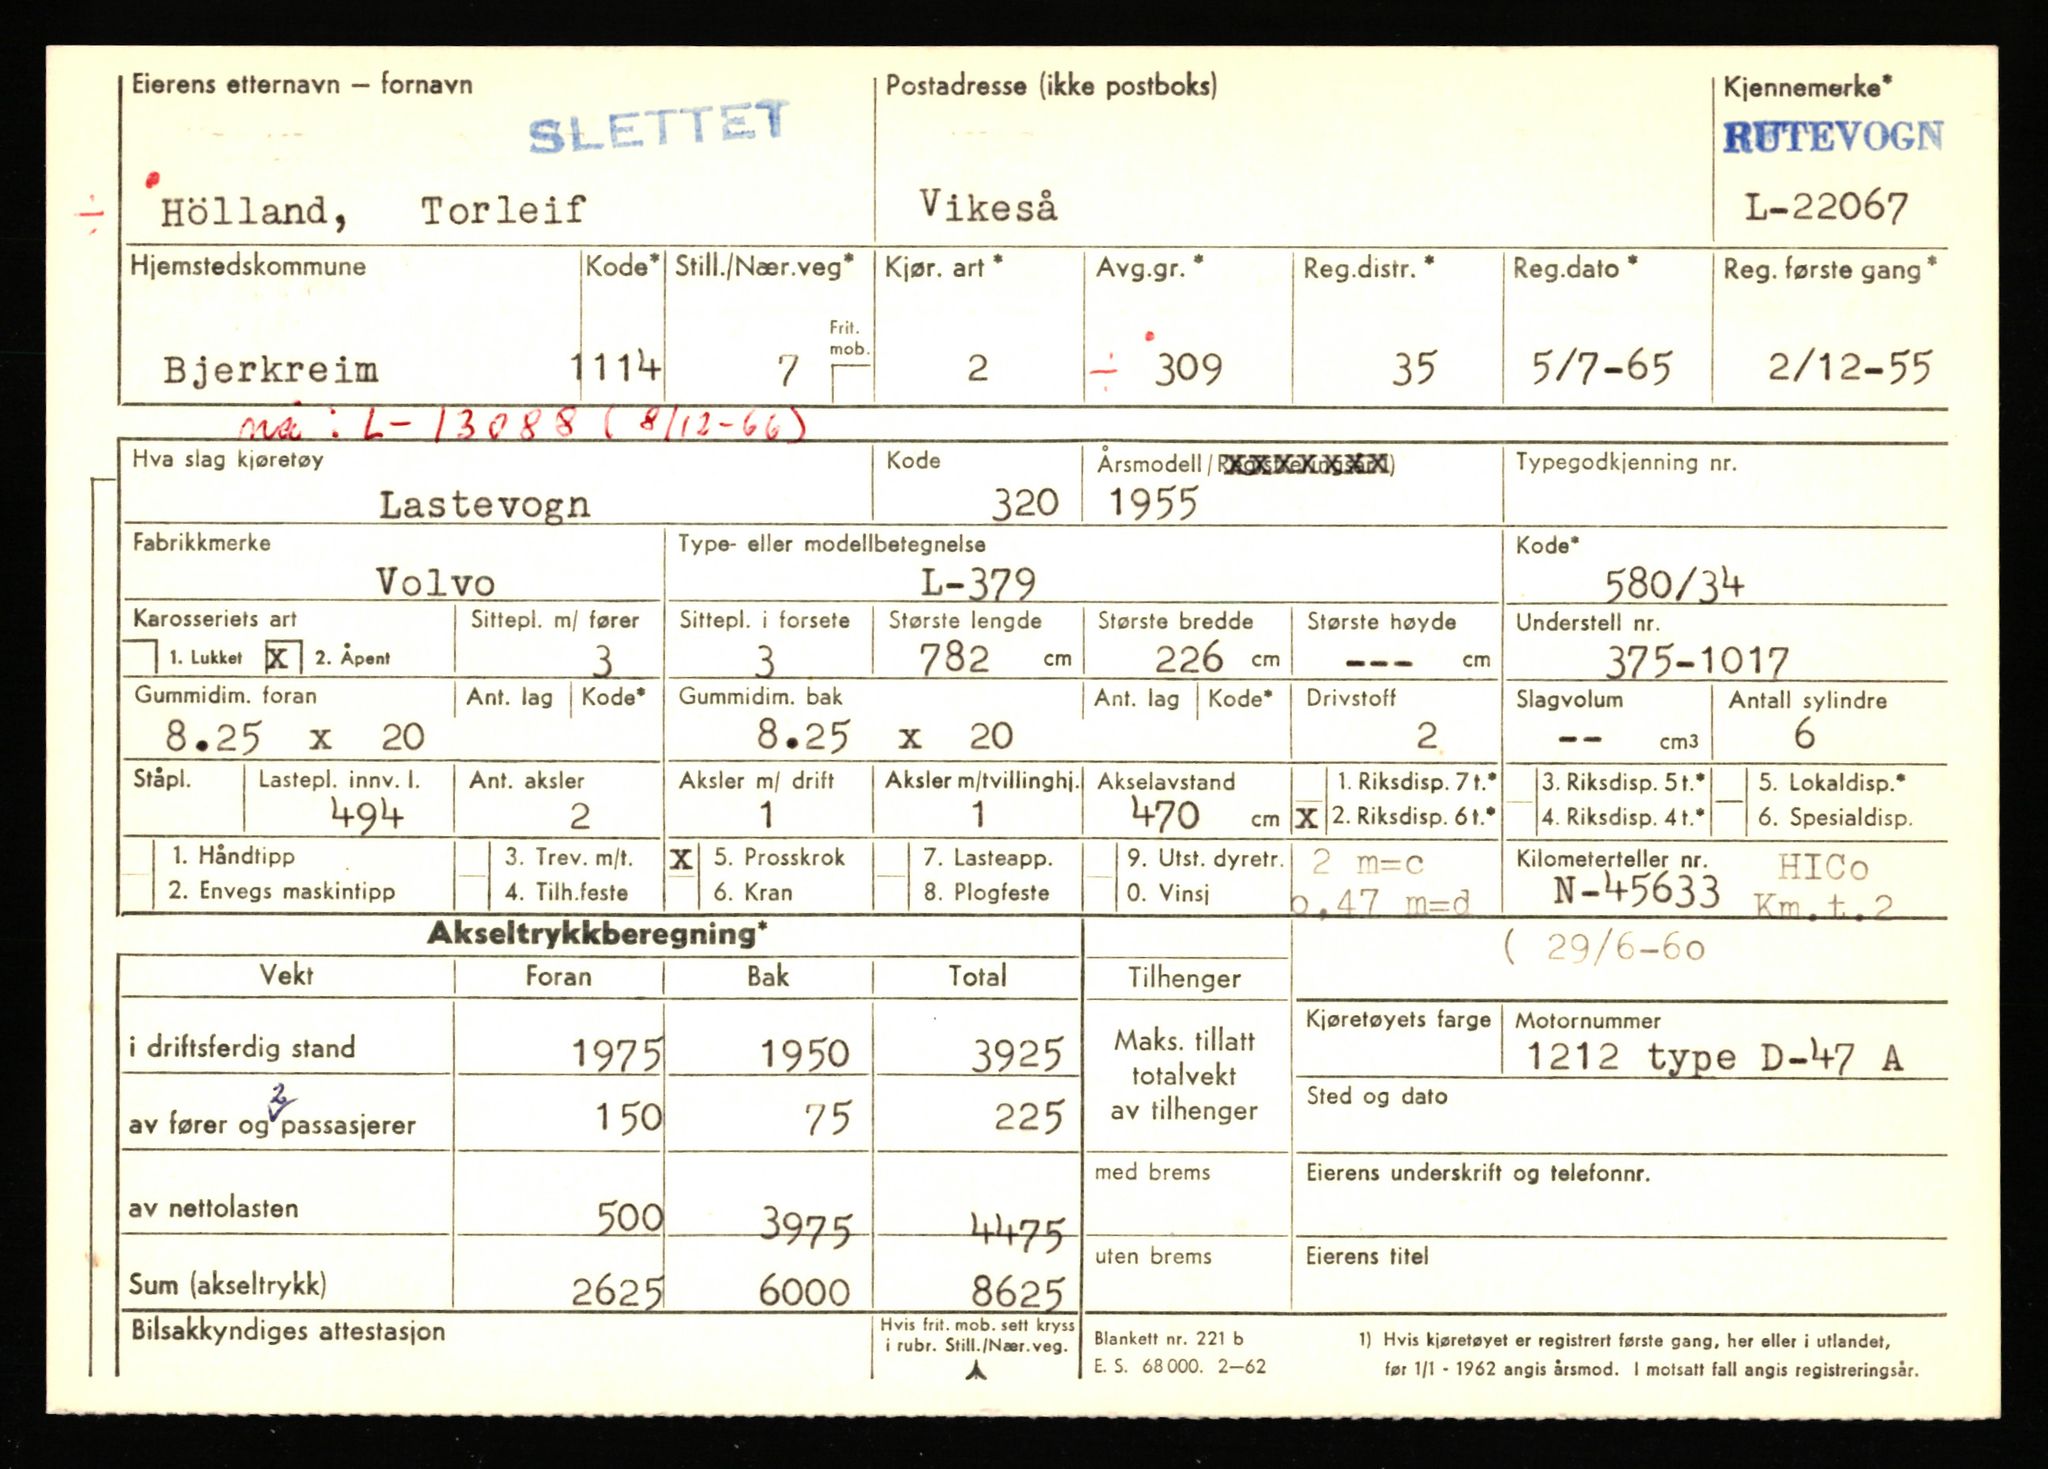 Eierens etternavn — fornavn Postadresse (ikke postboks) Kjennemerke*
SLETTET RUTEVOGN
÷ Hölland, Torleif Vikeså L-22067
Hjemstedskommune Kode* Still./Nær.veg* Kjør. art* Avg.gr.* Reg.distr.* Reg.dato* Reg. første gang*
Frit. mob.
Bjerkreim 1114 7 2 ÷ 309 35 5/7-65 2/12-55
nå : L-13088 (8/12-66)
Hva slag kjøretøy Kode Årsmodell/Registreringsår1) Typegodkjenning nr.
Lastevogn 320 1955
Fabrikkmerke Type- eller modellbetegnelse Kode*
Volvo L-379 580/34
Karosseriets art Sittepl. m/ fører Sittepl. i forsete Største lengde Største bredde Største høyde Understell nr.
1. Lukket X 2. Åpent 3 3 782 cm 226 cm --- cm 375-1017
Gummidim. foran Ant. lag Kode* Gummidim. bak Ant. lag Kode* Drivstoff Slagvolum Antall sylindre
8.25 x 20 8.25 x 20 2 -- cm3 6
Ståpl. Lastepl. innv. l. Ant. aksler Aksler m/ drift Aksler m/tvillinghj. Akselavstand 1. Riksdisp. 7 t.* 3. Riksdisp. 5 t.* 5. Lokaldisp.*
494 2 1 1 470 cm X 2. Riksdisp. 6 t.* 4. Riksdisp. 4 t.* 6. Spesialdisp.
1. Håndtipp 3. Trev. m/t. X 5. Prosskrok 7. Lasteapp. 9. Utst. dyretr. 2 m=c Kilometerteller nr. HICo
2. Envegs maskintipp 4. Tilh.feste 6. Kran 8. Plogfeste 0. Vinsj 0,47 m=d N-45633 Km.t.2
Akseltrykkberegning* ( 29/6-60
Vekt Foran Bak Total Tilhenger
Kjøretøyets farge Motornummer
i driftsferdig stand 1975 1950 3925 Maks. tillatt 1212 type D-47 A
totalvekt
2
av fører og passasjerer 150 75 225 av tilhenger Sted og dato
med brems Eierens underskrift og telefonnr.
av nettolasten 500 3975 4475
uten brems Eierens titel
Sum (akseltrykk) 2625 6000 8625
Bilsakkyndiges attestasjon Hvis frit. mob. sett kryss Blankett nr. 221 b 1) Hvis kjøretøyet er registrert første gang, her eller i utlandet,
i rubr. Still./Nær.veg. E. S. 68 000. 2—62 før 1/1 - 1962 angis årsmod. I motsatt fall angis registreringsår.